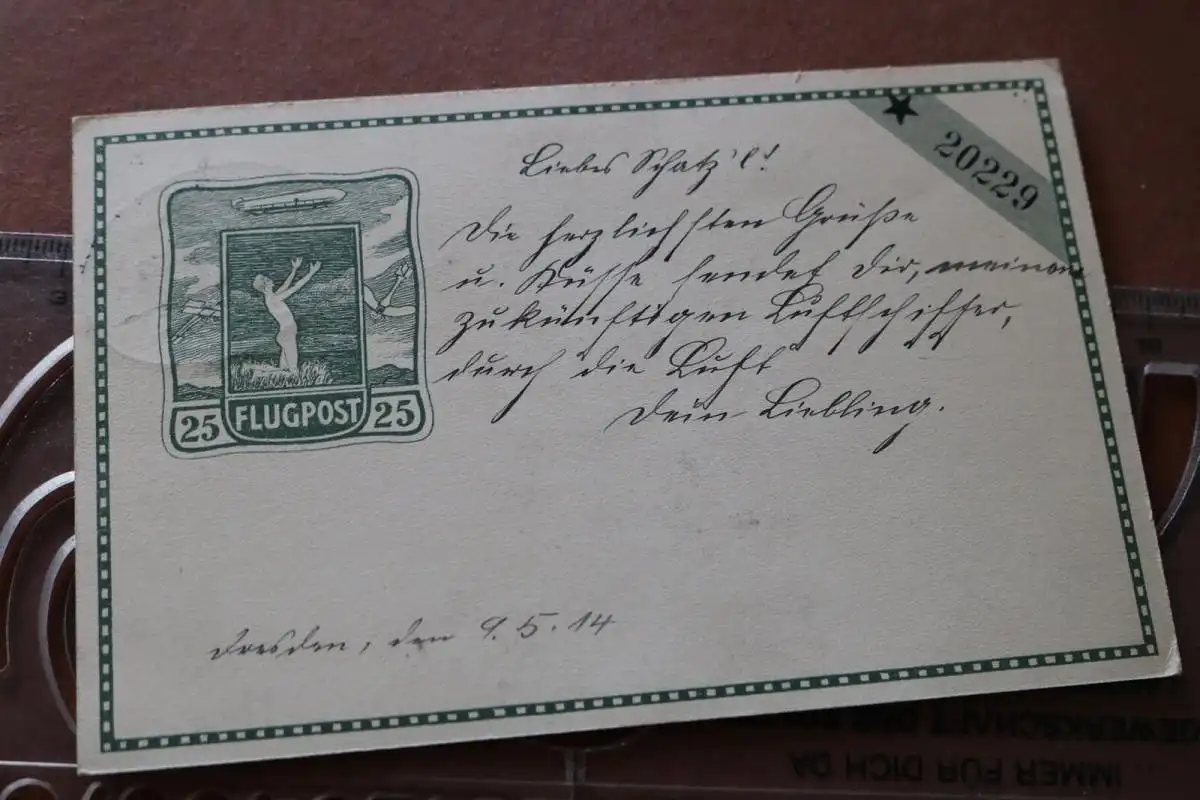 20229
Liebes Schatz'l!
Die herzlichsten Grüße
u. Küsse sendet Dir, meinem
zukünftigen Luftschiffer,
durch die Luft
Dein Liebling.
25 FLUGPOST 25
Dresden, den 9.5.14
GEWERKSCHAFT DER
IMMER FÜR DICH DA